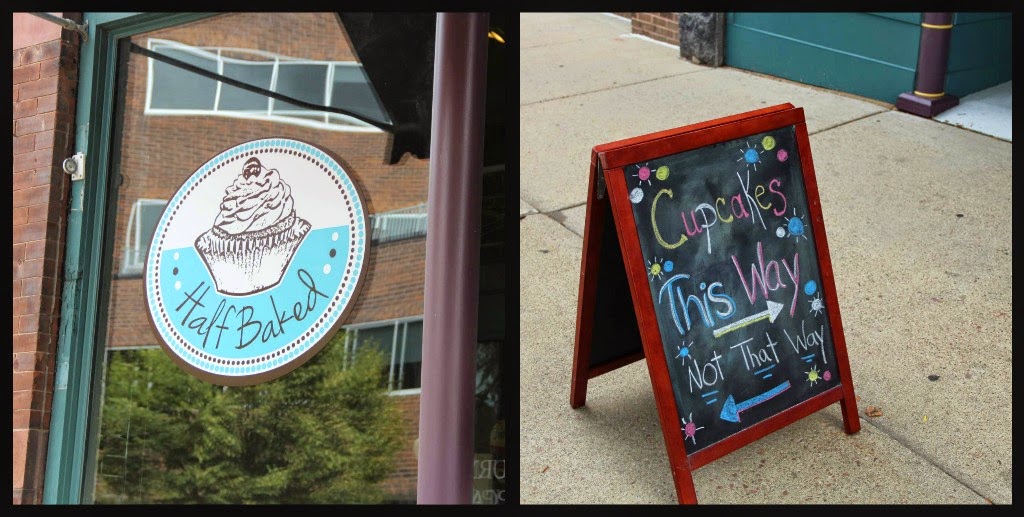 Half Baked
Cupcakes
This Way
Not That Way